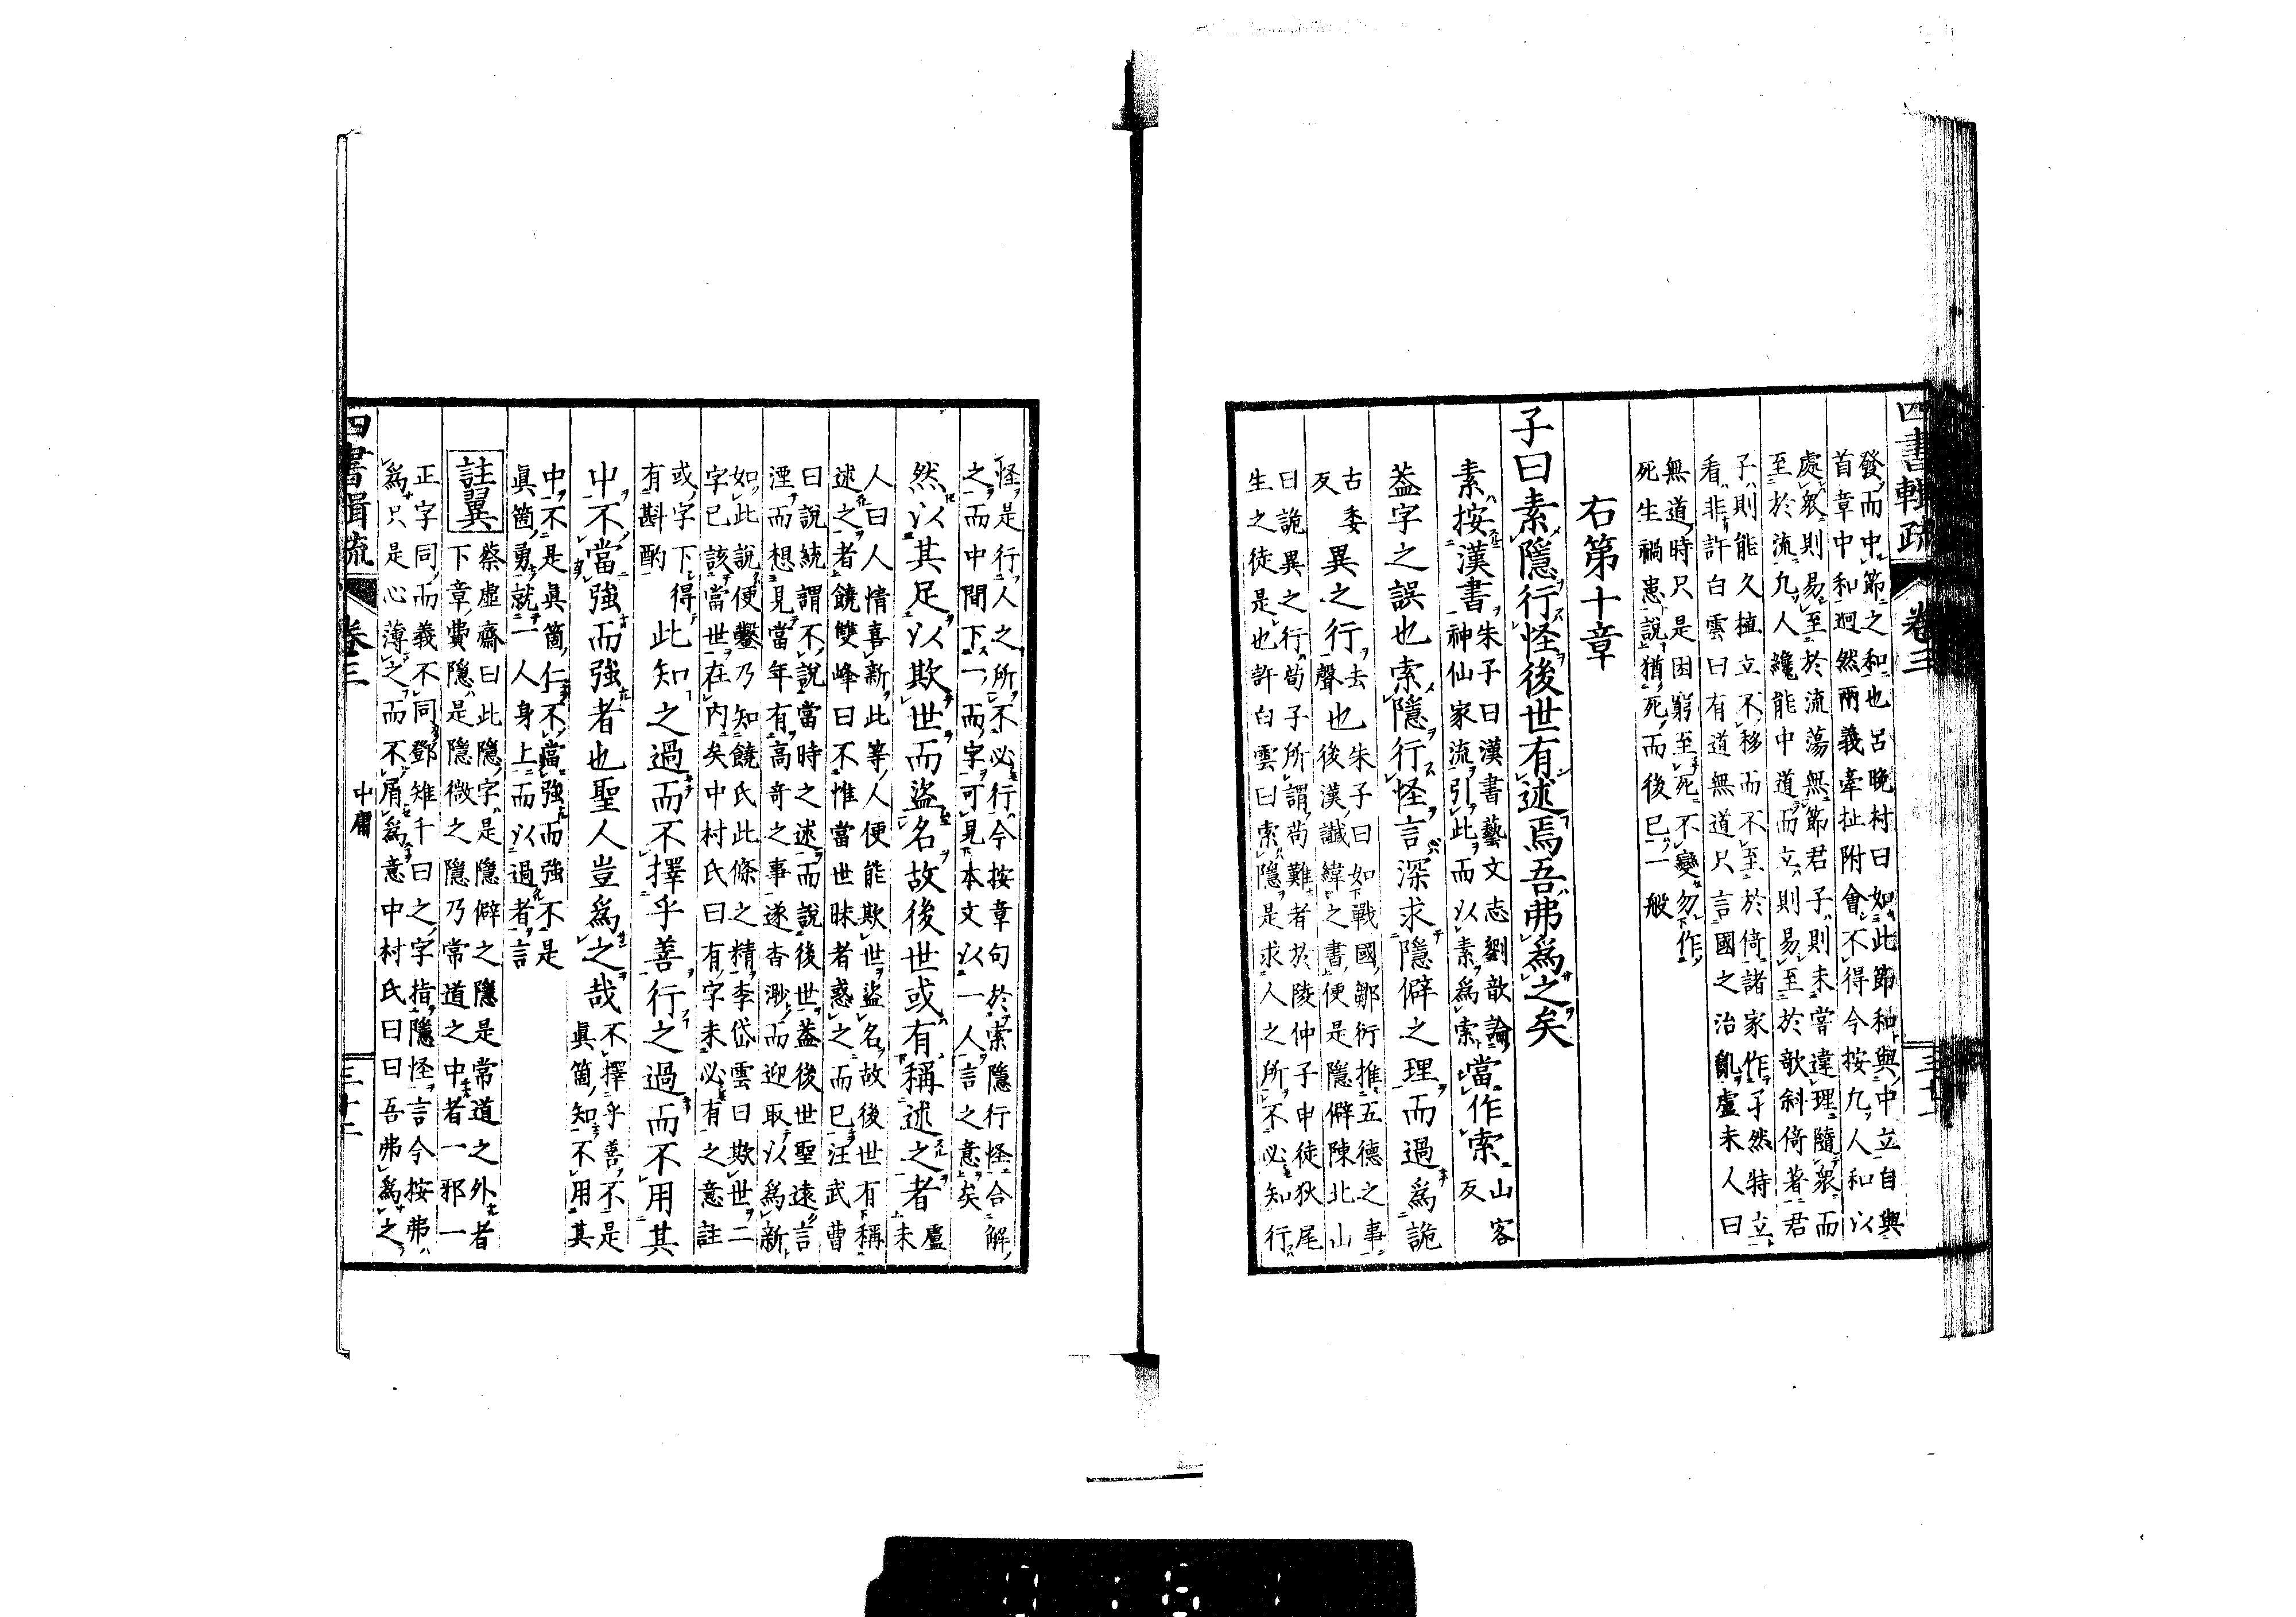 四書輯疏 卷三 三十二
發而中節之和也呂晚村曰如此節和與中立自與
首章中和迥然兩義牽扯附會不得今按凡人和以
處衆則易至於流蕩無節君子則未嘗違理隨衆而
至於流凡人纔能中道而立則易至於欹斜倚著君
子則能久植立不移而不至於倚諸家作孑然特立
看非許白雲曰有道無道只言國之治亂盧未人曰
無道時只是困窮至死不變勿作
死生禍患說猶死而後已一般
右第十章
子曰素隱行怪後世有述焉吾弗爲之矣
素按漢書朱子曰漢書藝文志劉歆論
神仙家流引此而以素爲索當作索山客
反
蓋字之誤也索隱行怪言深求隱僻之理而過爲詭
古委
反異之行去
聲也朱子曰如戰國鄒衍推五德之事
後漢讖緯之書便是隱僻陳北山
曰詭異之行荀子所謂苟難者於陵仲子申徒狄尾
生之徒是也許白雲曰索隱是求人之所不必知行
怪是行人之所不必行今按章句於索隱行怪合解
之而中間下一而字可見本文以一人言之意矣
然以其足以欺世而盜名故後世或有稱述之者盧
未
人曰人情喜新此等人便能欺世盜名故後世有稱
述之者饒雙峰曰不惟當世昧者惑之而已汪武曹
曰說統謂不說當時之述而說後世蓋後世聖遠言
湮而想見當年有高奇之事遂杳渺而迎取以爲新
如此說便鑿乃知饒氏此條之精李岱雲曰欺世二
字已該當世在內矣中村氏曰有字未必有之意註
或字下得
有斟酌此知之過而不擇乎善行之過而不用其
中不當強而強者也聖人豈爲之哉不擇乎善不是
眞箇知不用其
中不是眞箇仁不當強而強不是
眞箇勇就一人身上而以過者言
註翼 蔡虛齋曰此隱字是隱僻之隱是常道之外者
下章費隱是隱微之隱乃常道之中者一邪一
正字同而義不同鄧雉千曰之字指隱怪言今按弗
爲只是心薄之而不屑爲意中村氏曰曰吾弗爲之
四書輯疏 卷三 中庸 三十二